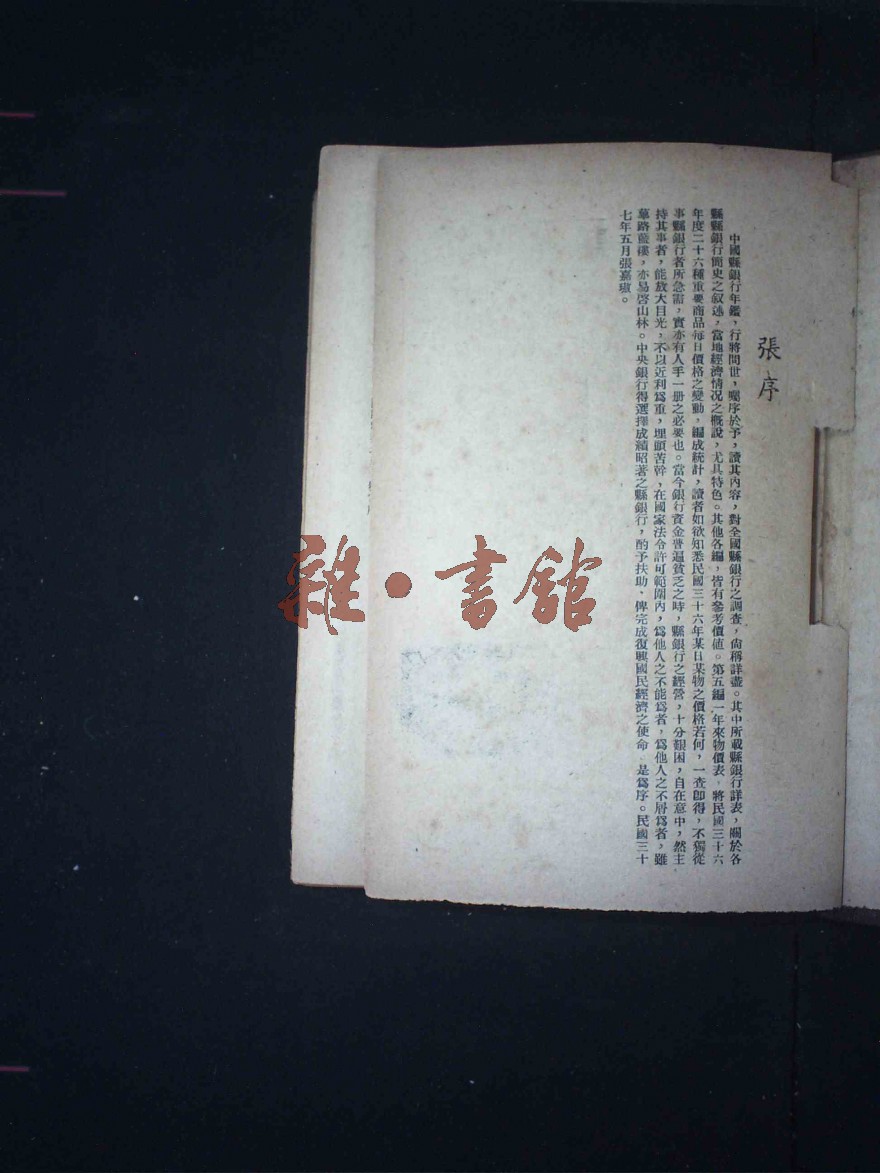 張序
中國縣銀行年鑑，行將問世，囑序於予，讀其內容，對全國縣銀行之調查，尙稱詳盡。其中所載縣銀行詳表，關於各
縣縣銀行簡史之叙述，當地經濟情况之槪說，尤具特色。其他各編，皆有參考價値。第五編一年來物價表，將民國三十六
年度二十六種重要商品每日價格之變動，編成統計，讀者如欲知悉民國三十六年某日某物之價格若何，一查卽得，不獨從
事縣銀行者所急需，實亦有人手一册之必要也。當今銀行資金普遍貧乏之時，縣銀行之經營，十分艱困，自在意中，然主
持其事者，能放大目光，不以近利爲重，埋頭苦幹，在國家法令許可範圍內，爲他人之不能爲者，爲他人之不屑爲者，雖
蓽路藍褸，亦易啓山林。中央銀行得選擇成績昭著之縣銀行，酌予扶助，俾完成復興國民經濟之使命，是爲序。民國三十
七年五月張嘉璈。
雜·書館